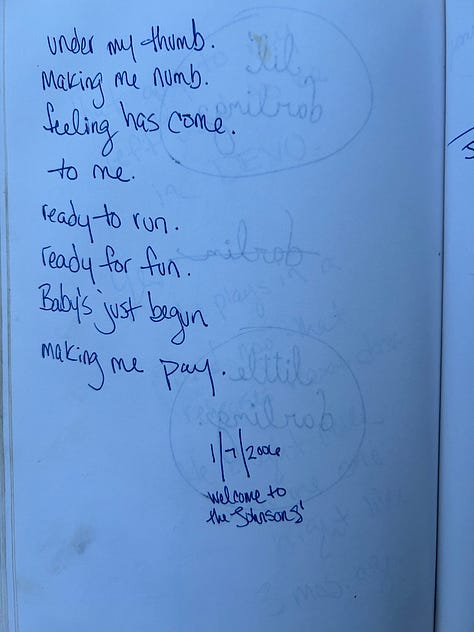 under my thumb.
Making me numb.
feeling has come.
to me.
ready to run.
ready for fun.
Baby's just begun
making me pay.
1/7/2006
welcome to
the Johnsons'